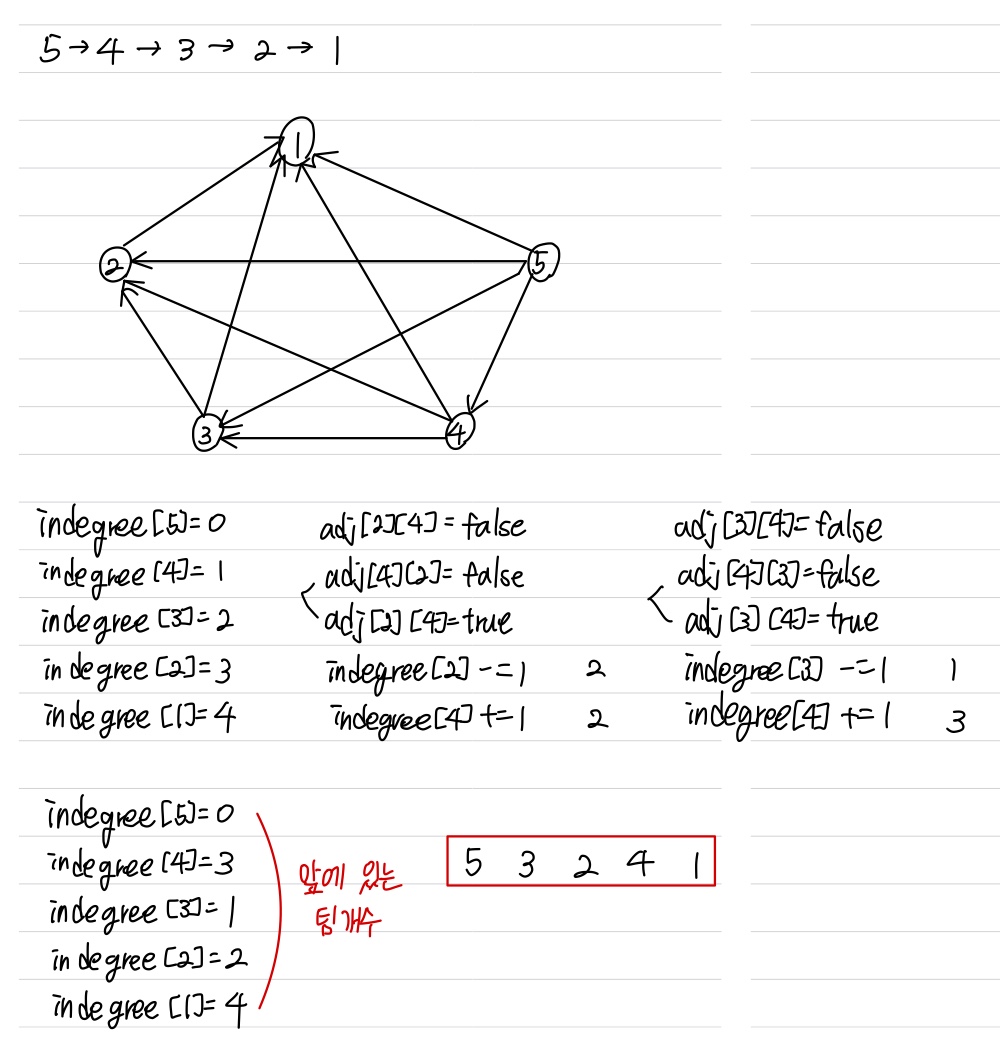 5→4→3→2→1
1
2
5
3
4
indegree[5]=0
indegree[4]=1
indegree[3]=2
indegree[2]=3
indegree[1]=4
adj[2][4]=false
adj[4][2]=false
adj[2][4]=true
indegree[2] -=1 2
indegree[4] +=1 2
adj[3][4]=false
adj[4][3]=false
adj[3][4]=true
indegree[3] -=1 1
indegree[4] +=1 3
indegree[5]=0
indegree[4]=3
indegree[3]=1
indegree[2]=2
indegree[1]=4
앞에 있는
팀개수
5 3 2 4 1